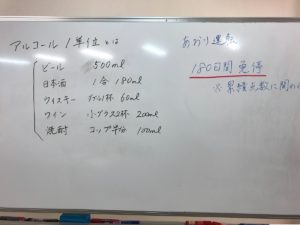 アルコール1単位とは
ビール 500ml
日本酒 1合 180ml
ウイスキー ダブル1杯 60ml
ワイン 小グラス2杯 200ml
焼酎 コップ半分 100ml
あおり運転
180日間免停
※累積点数に関わ